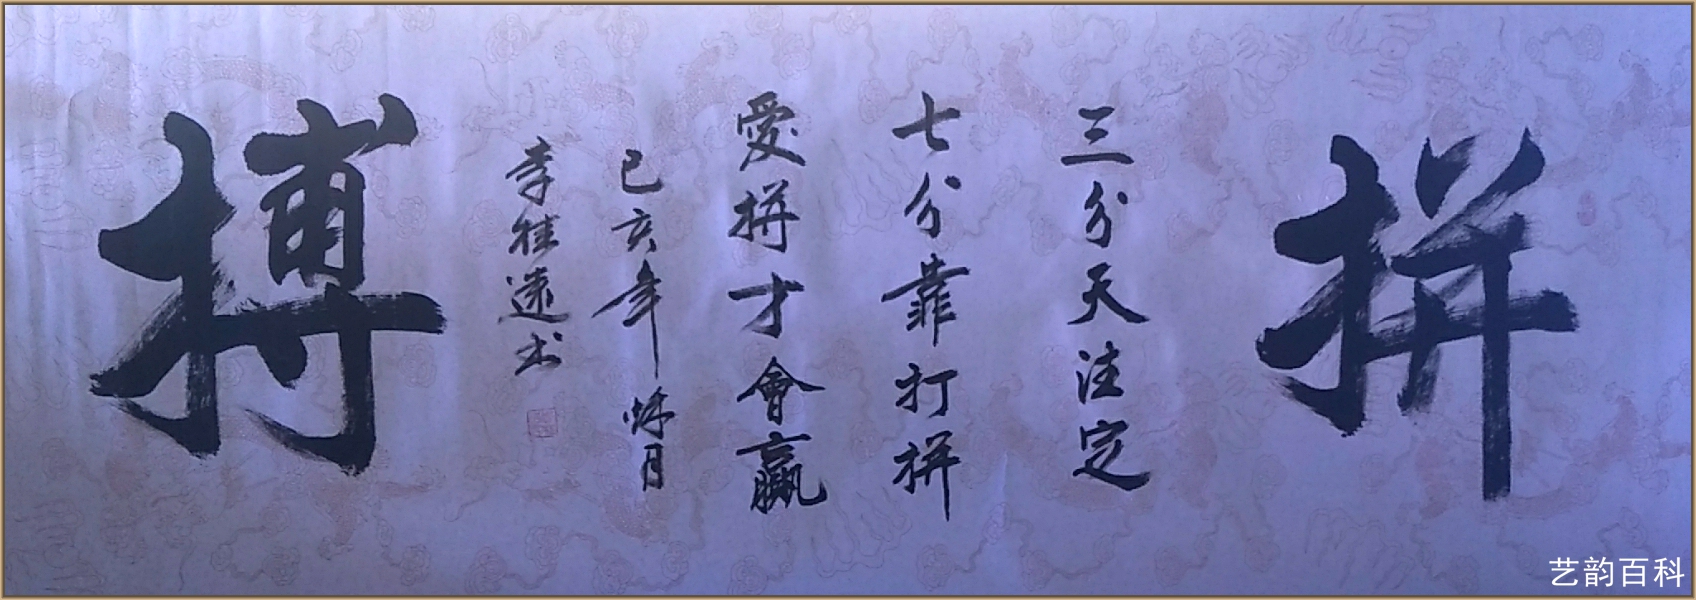 拼
三分天注定
七分靠打拼
愛拼才會贏
己亥年秌月
李桂远书
搏
艺韵百科